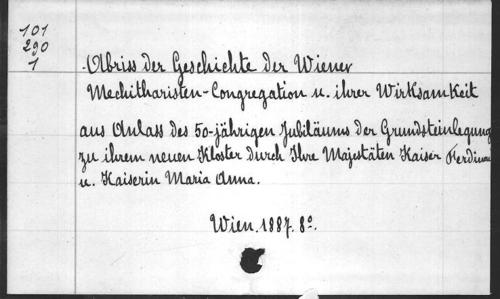 101
290
1
Abriss der Geschichte der Wiener
Mechitharisten-Congregation u. ihrer Wirksamkeit
aus Anlass des 50-jährigen Jubiläums der Grundsteinlegung
zu ihrem neuen Kloster durch Ihre Majestäten Kaiser
u. Kaiserin Maria Anna.
Wien. 1887. 8º.